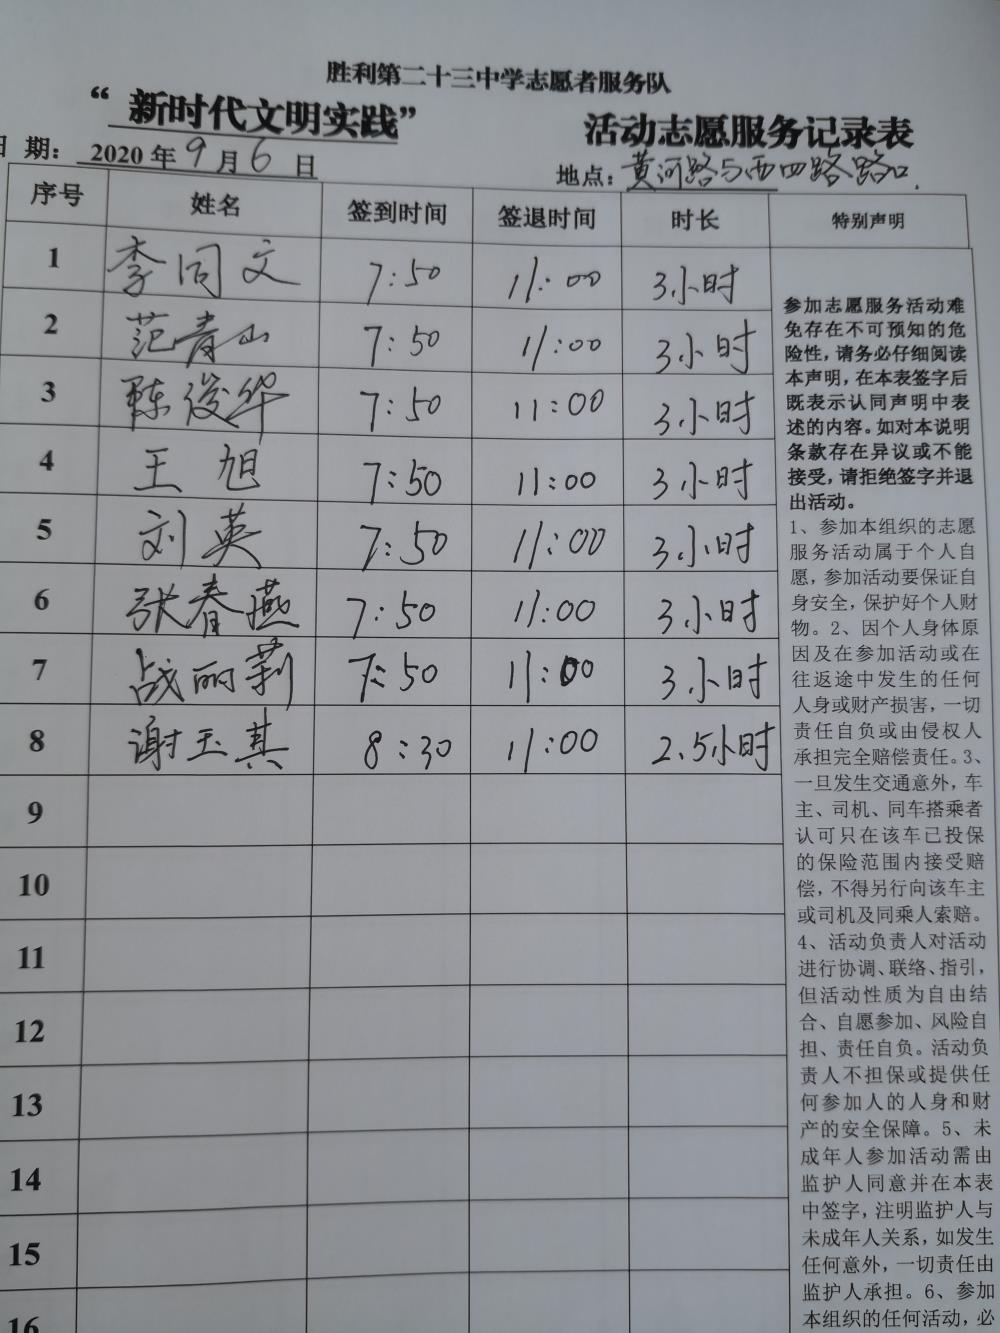 胜利第二十三中学志愿者服务队
“新时代文明实践” 活动志愿服务记录表
日 期： 2020 年 9 月 6 日 地点：黄河路与西四路路口.
序号 姓名 签到时间 签退时间 时长 特别声明
1 李同文 7:50 11:00 3小时
2 范青山 7:50 11:00 3小时
3 陈俊华 7:50 11:00 3小时
4 王旭 7:50 11:00 3小时
5 刘英 7:50 11:00 3小时
6 张春燕 7:50 11:00 3小时
7 战丽莉 7:50 11:00 3小时
8 谢玉其 8:30 11:00 2.5小时
9
10
11
12
13
14
15
16
参加志愿服务活动难
免存在不可预知的危
险性，请务必仔细阅读
本声明，在本表签字后
既表示认同声明中表
述的内容。如对本说明
条款存在异议或不能
接受，请拒绝签字并退
出活动。
1、参加本组织的志愿
服务活动属于个人自
愿，参加活动要保证自
身安全，保护好个人财
物。2、因个人身体原
因及在参加活动或在
往返途中发生的任何
人身或财产损害，一切
责任自负或由侵权人
承担完全赔偿责任。3、
一旦发生交通意外，车
主、司机、同车搭乘者
认可只在该车已投保
的保险范围内接受赔
偿，不得另行向该车主
或司机及同乘人索赔。
4、活动负责人对活动
进行协调、联络、指引，
但活动性质为自由结
合、自愿参加、风险自
担、责任自负。活动负
责人不担保或提供任
何参加人的人身和财
产的安全保障。5、未
成年人参加活动需由
监护人同意并在本表
中签字，注明监护人与
未成年人关系，如发生
任何意外，一切责任由
监护人承担。6、参加
本组织的任何活动，必